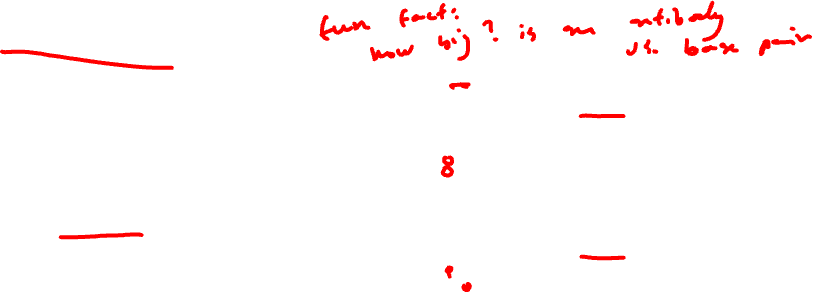 fun fact:
how big? is an antibody
vs. base pair
8